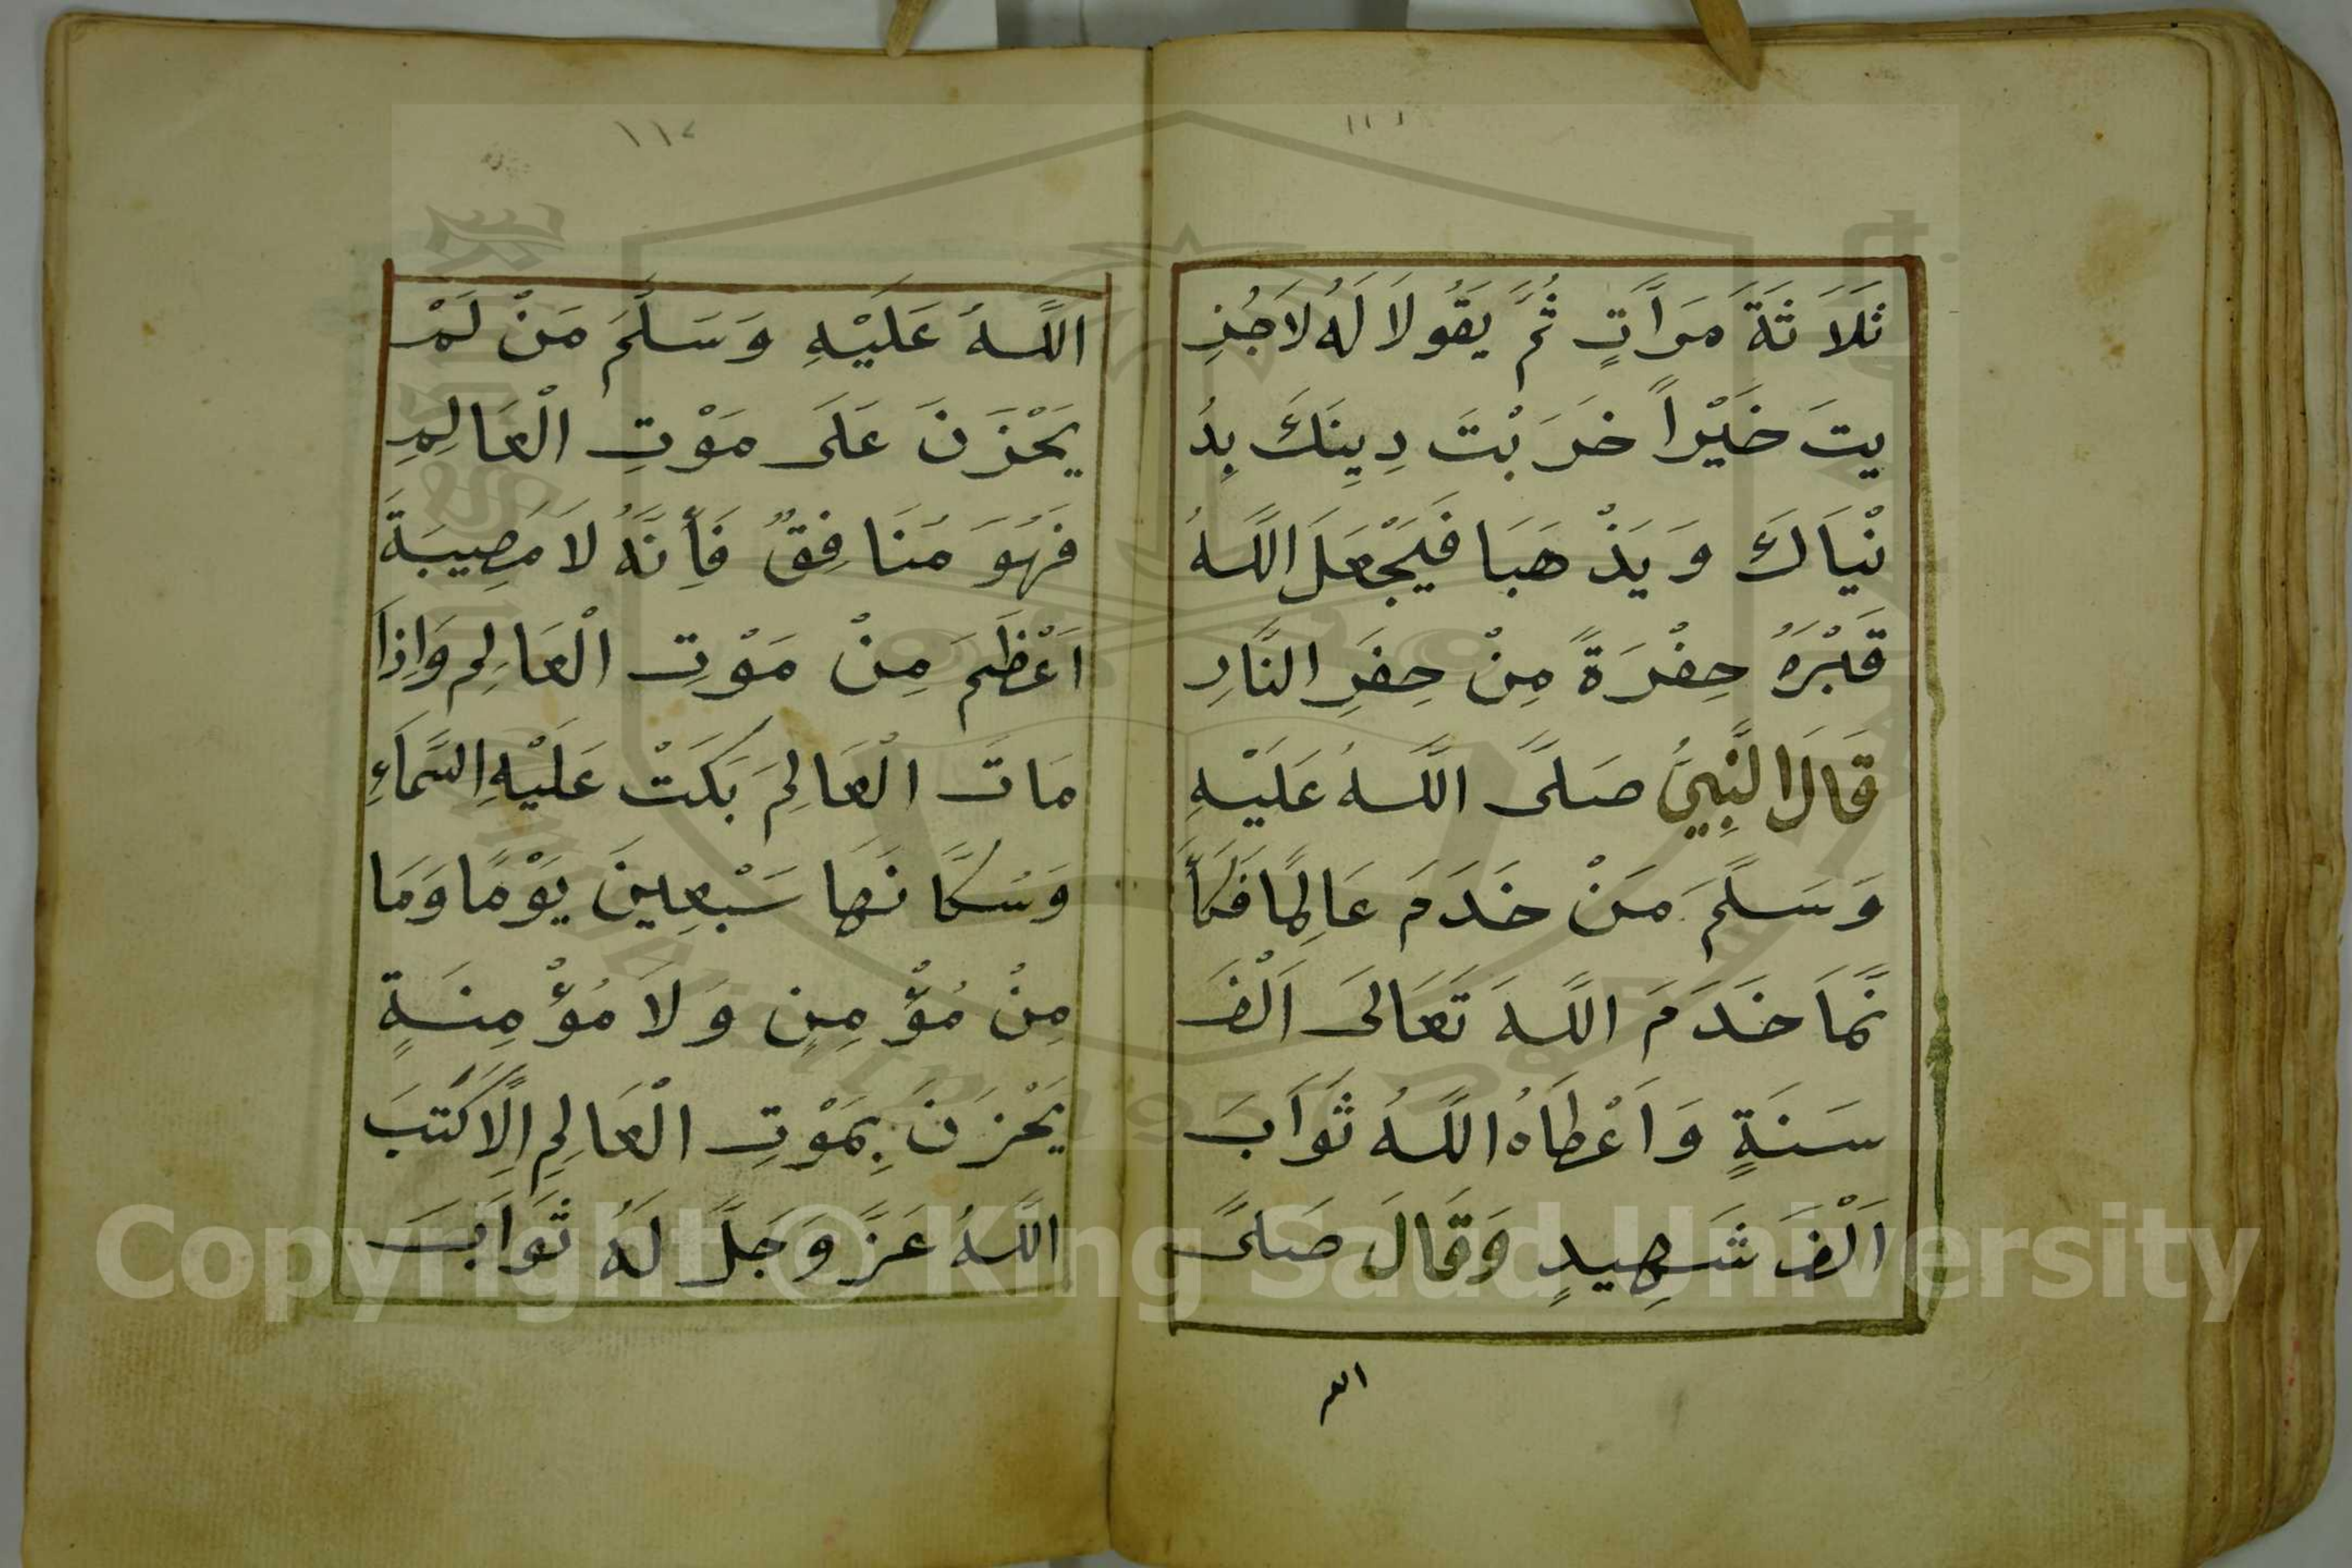 ١١١
ثَلَاثَةَ مَرَّاتٍ ثُمَّ يَقُولَا لَهُ لَاجُزِ
يتَ خَيْرًا خَرَبْتَ دِينَكَ بِدُ
نْيَاكَ وَيَذْهَبَا فَيَجْعَلَ اللَّهُ
قَبْرَهُ حِفْرَةً مِنْ حِفَرِ النَّارِ
قَالَ النَّبِيُّ صَلَّى اللَّهُ عَلَيْهِ
وَسَلَّمَ مَنْ خَدَمَ عَالِمًا فَكَأَ
نَّمَا خَدَمَ اللَّهَ تَعَالَى اَلْفَ
سَنَةٍ وَاَعْطَاهُ اللَّهُ ثَوَابَ
اَلْفَ شَهِيدٍ وَقَالَ صَلَّى
الله
١١٢
اللَّهُ عَلَيْهِ وَسَلَّمَ مَنْ لَمْ
يَحْزَنَ عَلَى مَوْتِ الْعَالِمِ
فَهُوَ مُنَافِقٌ فَأِنَّهُ لَا مُصِيبَةَ
اَعْظَمَ مِنْ مَوْتِ الْعَالِمِ وَاِذَا
مَاتَ الْعَالِمَ بَكَتْ عَلَيْهِ السَّمَاءِ
وَسُكَّانَهَا سَبْعِينَ يَوْمًا وَمَا
مِنْ مُؤْمِنٍ وَلَا مُؤْمِنَةٍ
يَحْزَنَ بِمَوْتِ الْعَالِمِ اِلَّا كَتَبَ
اللَّهُ عَزَّ وَجَلَّ لَهُ ثَوَابَ
Copyright © King Saud University